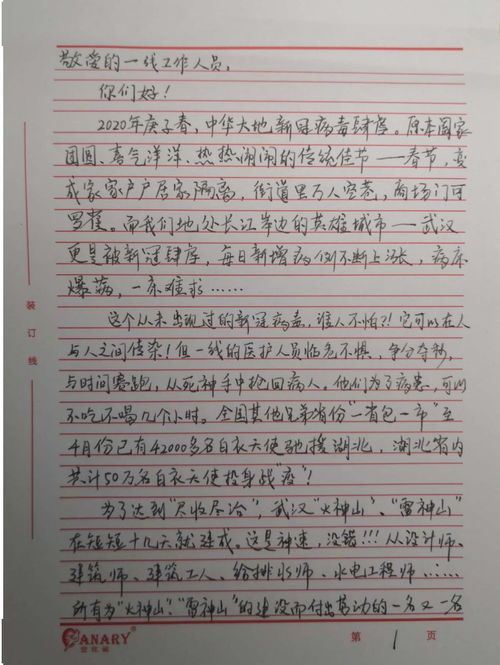 敬爱的一线工作人员,
你们好!
2020年庚子春,中华大地新冠病毒肆虐。原本阖家
团圆、喜气洋洋、热热闹闹的传统佳节——春节,变
成家家户户居家隔离,街道里万人空巷,商场门可
罗雀。而我们地处长江岸边的英雄城市——武汉
更是被新冠肆虐,每日新增病例不断上涨,病床
爆满,一床难求……
这个从未出现过的新冠病毒,谁人不怕?!它可以在人
与人之间传染!但一线的医护人员临危不惧,争分夺秒,
与时间赛跑,从死神手中抢回病人。他们为了病患,可以
不吃不喝几个小时。全国其他兄弟省份"一省包一市"至
4月份已有42000多名白衣天使驰援湖北,湖北省内
共计50万名白衣天使投身战"疫"!
为了达到"尽收尽治",武汉"火神山"、"雷神山"
在短短十几天就建成。这是神速,没错!!!从设计师、
建筑师、建筑工人、给排水师、水电工程师……
所有为"火神山"、"雷神山"的建设而付出劳动的一名又一名
装
订
线
CANARY
第 1 页